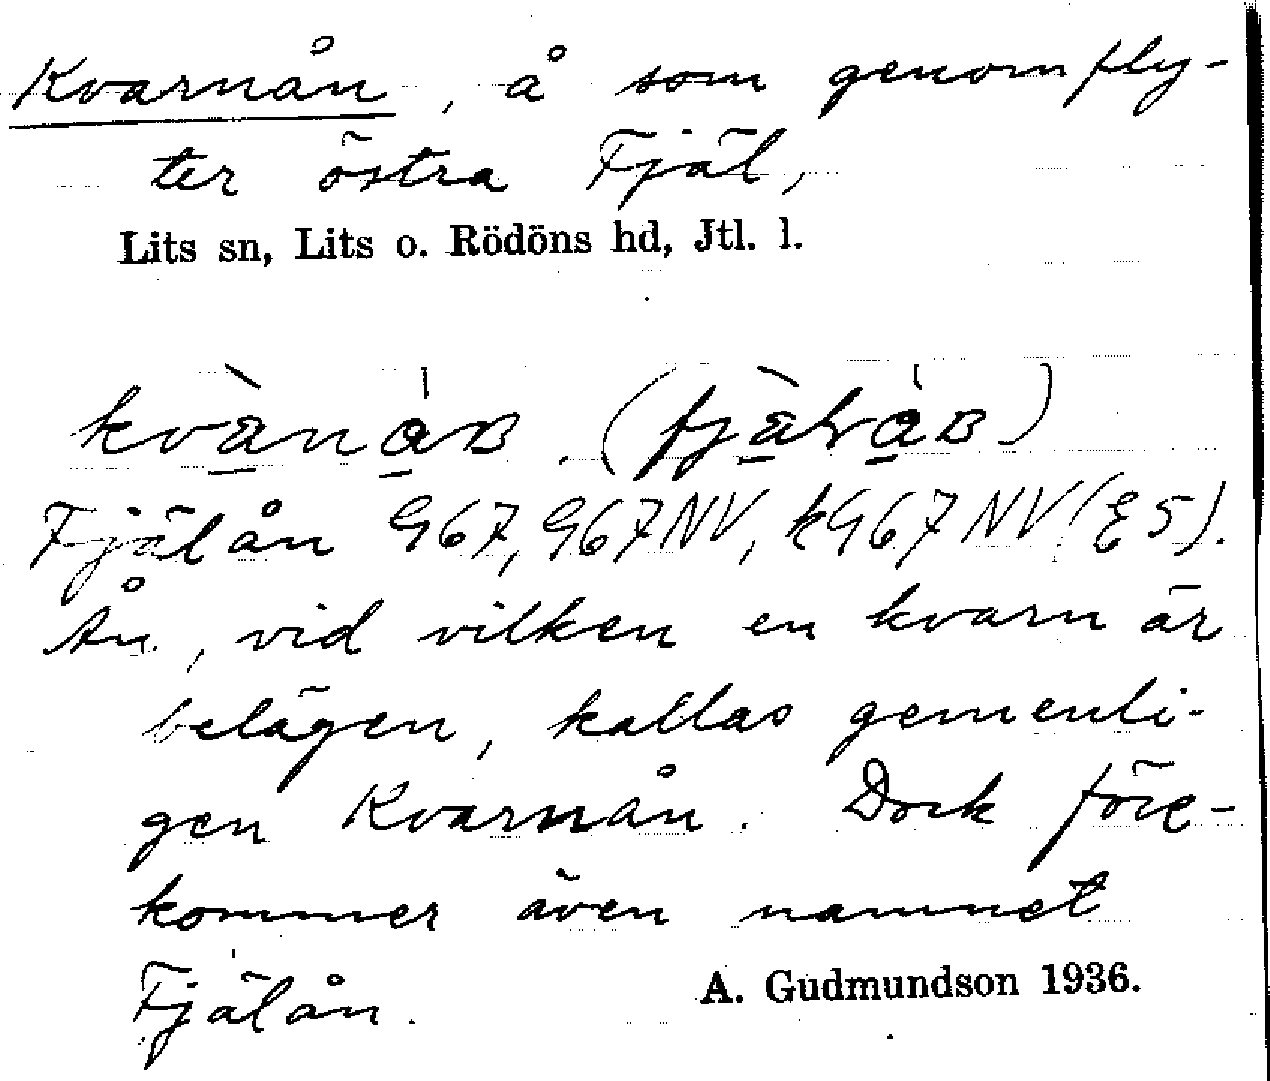 Kvarnån, å som genomfly-
ter östra Fjäl,
Lits sn, Lits o. Rödöns hd, Jtl. l.
Fjälån 967, 967 NV, k967 NV (E5).
Ån, vid vilken en kvarn är
belägen, kallas gemenli-
gen Kvarnån. Dock före-
kommer även namnet
Fjälån.
A. Gudmundson 1936.